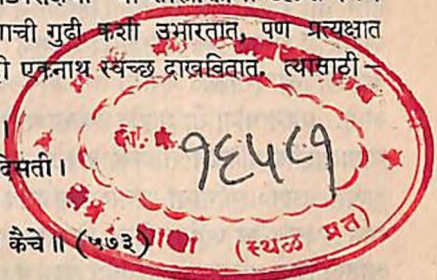 ाची गुढी कशी उभारतात, पण प्रत्यक्षात
ी एकनाथ स्वच्छ दाखवितात. त्यासाठी –
।
दिसती।
१६५८१
कैचे॥ (५७३)
(स्थळ प्रत)